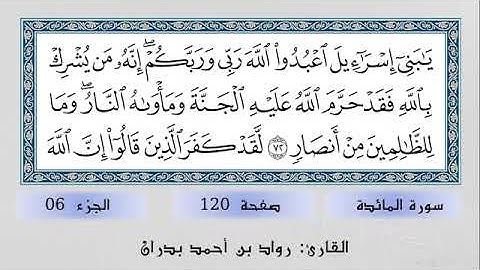 يَٰبَنِيٓ إِسۡرَٰٓءِيلَ ٱعۡبُدُواْ ٱللَّهَ رَبِّي وَرَبَّكُمۡۖ إِنَّهُۥ مَن يُشۡرِكۡ
بِٱللَّهِ فَقَدۡ حَرَّمَ ٱللَّهُ عَلَيۡهِ ٱلۡجَنَّةَ وَمَأۡوَىٰهُ ٱلنَّارُۖ وَمَا
لِلظَّٰلِمِينَ مِنۡ أَنصَارٖ ٧٢ لَّقَدۡ كَفَرَ ٱلَّذِينَ قَالُوٓاْ إِنَّ ٱللَّهَ
سورة المائدة صفحة 120 الجزء 06
القارئ: رواد بن أحمد بدران